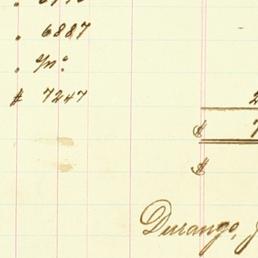 " 6887
" Mo
# 7247
2
$ 7
$
Durango,